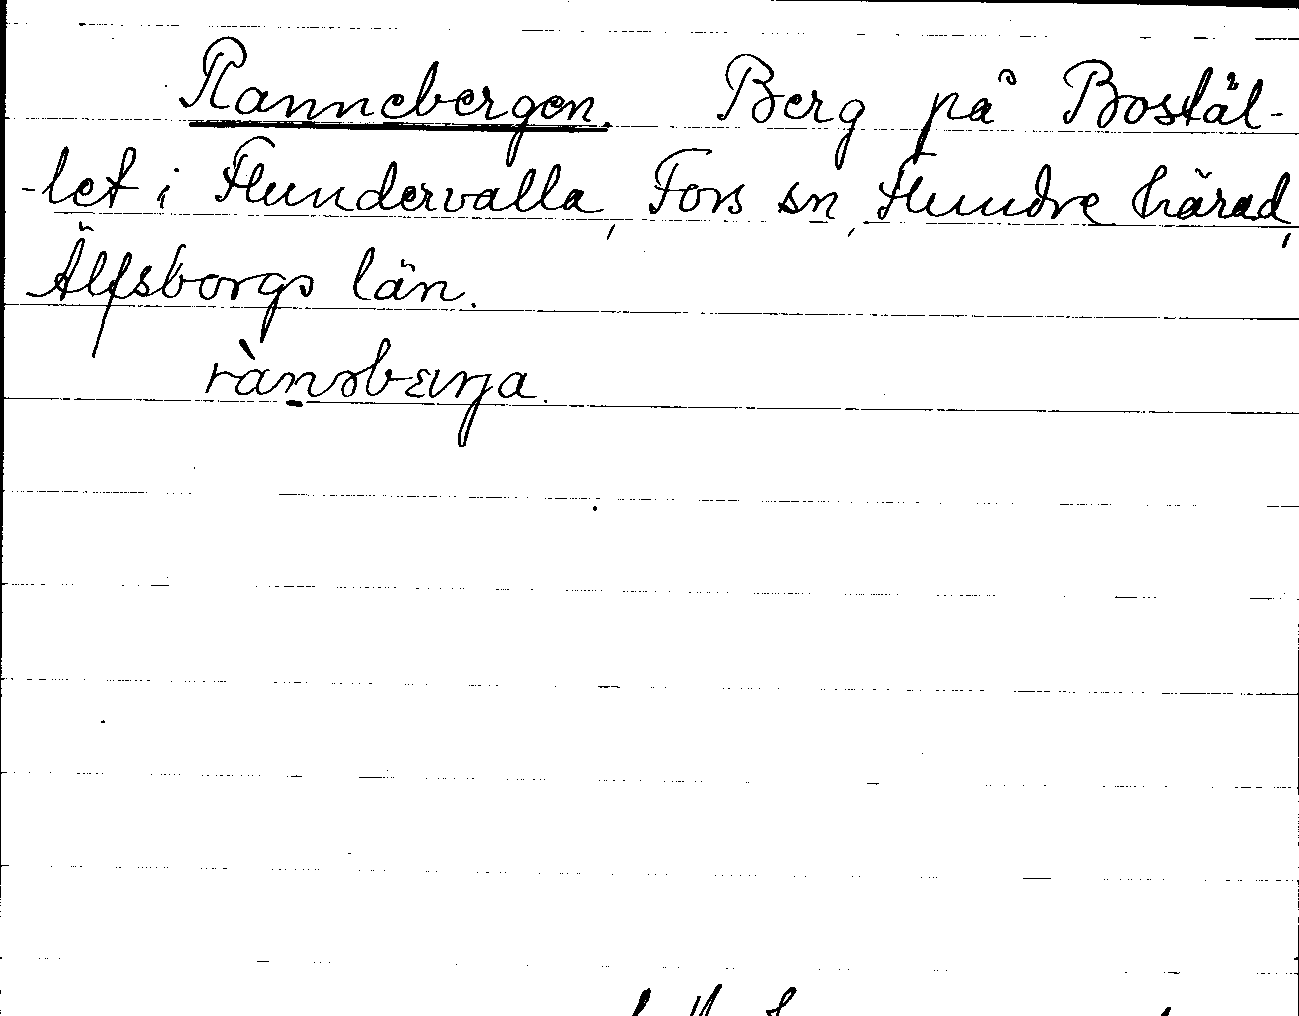 Rannebergen. Berg på Bostäl-
-let i Flundervalla, Fors sn, Flundre härad,
Älfsborgs län.